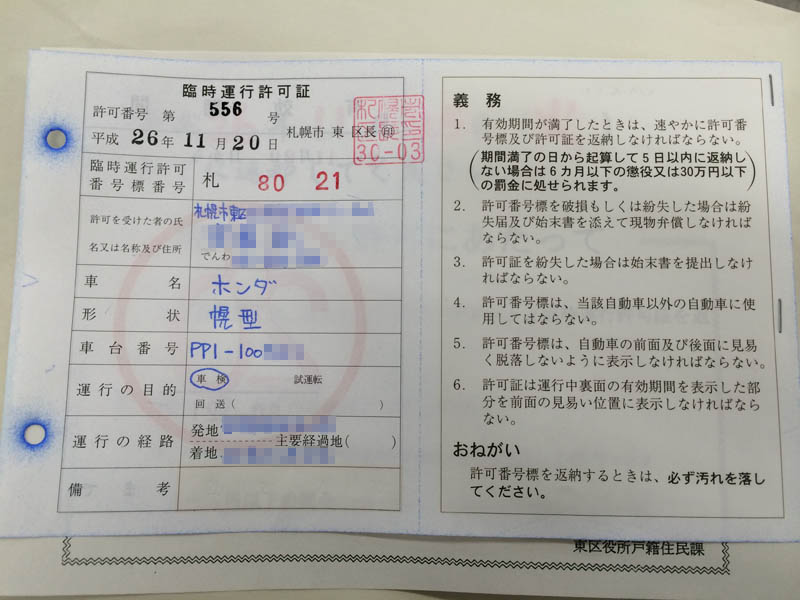 臨時運行許可証
許可番号 第 556 号
平成 26年 11月 20日 札幌市 東 区長㊞
30-03
臨時運行許可
番号標番号
札 80 21
許可を受けた者の氏
名又は名称及び住所
札幌市東区
でんわ
車名 ホンダ
形状 幌型
車台番号 PP1-100
運行の目的
車検 試運転
回送( )
運行の経路
発地
主要経過地( )
着地
備考
義務
1. 有効期間が満了したときは、速やかに許可番
号標及び許可証を返納しなければならない。
(期間満了の日から起算して5日以内に返納し
ない場合は6カ月以下の懲役又は30万円以下
の罰金に処せられます。)
2. 許可番号標を破損もしくは紛失した場合は紛
失届及び始末書を添えて現物弁償しなければ
ならない。
3. 許可証を紛失した場合は始末書を提出しなけ
ればならない。
4. 許可番号標は、当該自動車以外の自動車に使
用してはならない。
5. 許可番号標は、自動車の前面及び後面に見易
く脱落しないように表示しなければならない。
6. 許可証は運行中裏面の有効期間を表示した部
分を前面の見易い位置に表示しなければなら
ない。
おねがい
許可番号標を返納するときは、必ず汚れを落し
てください。
東区役所戸籍住民課